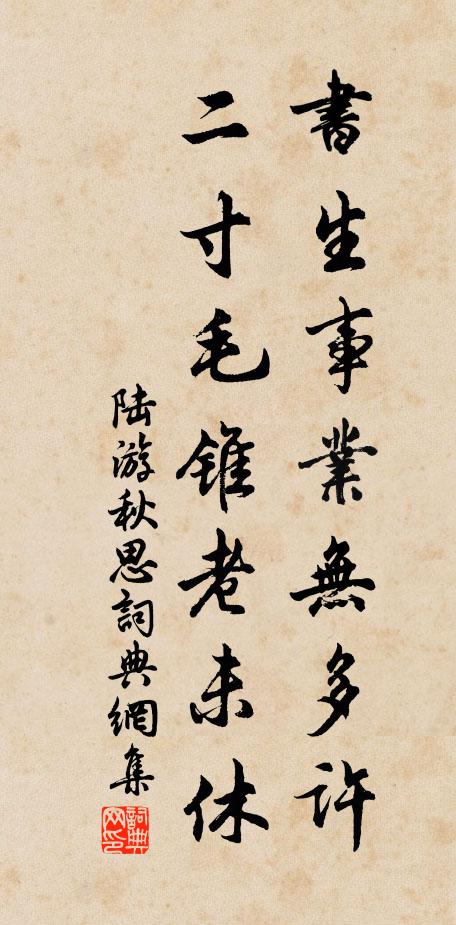 書生事業無多許
二寸毛錐老未休
陆游秋思詞典網集
詞典網印